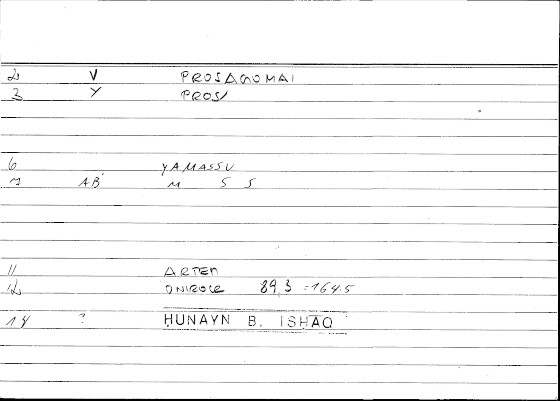 2 V PROSAGOMAI
3 Y PROS/
6 YAMASSU
7 AB' M S S
11 ARTEM
12 ONIROCR 89,3 = 164.5
14 ? ḤUNAYN B. ISḤĀQ